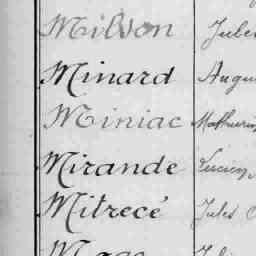 Milson Jules
Minard Augu
Miniac Mathurin
Mirande Lucien
Mitrecé Jules